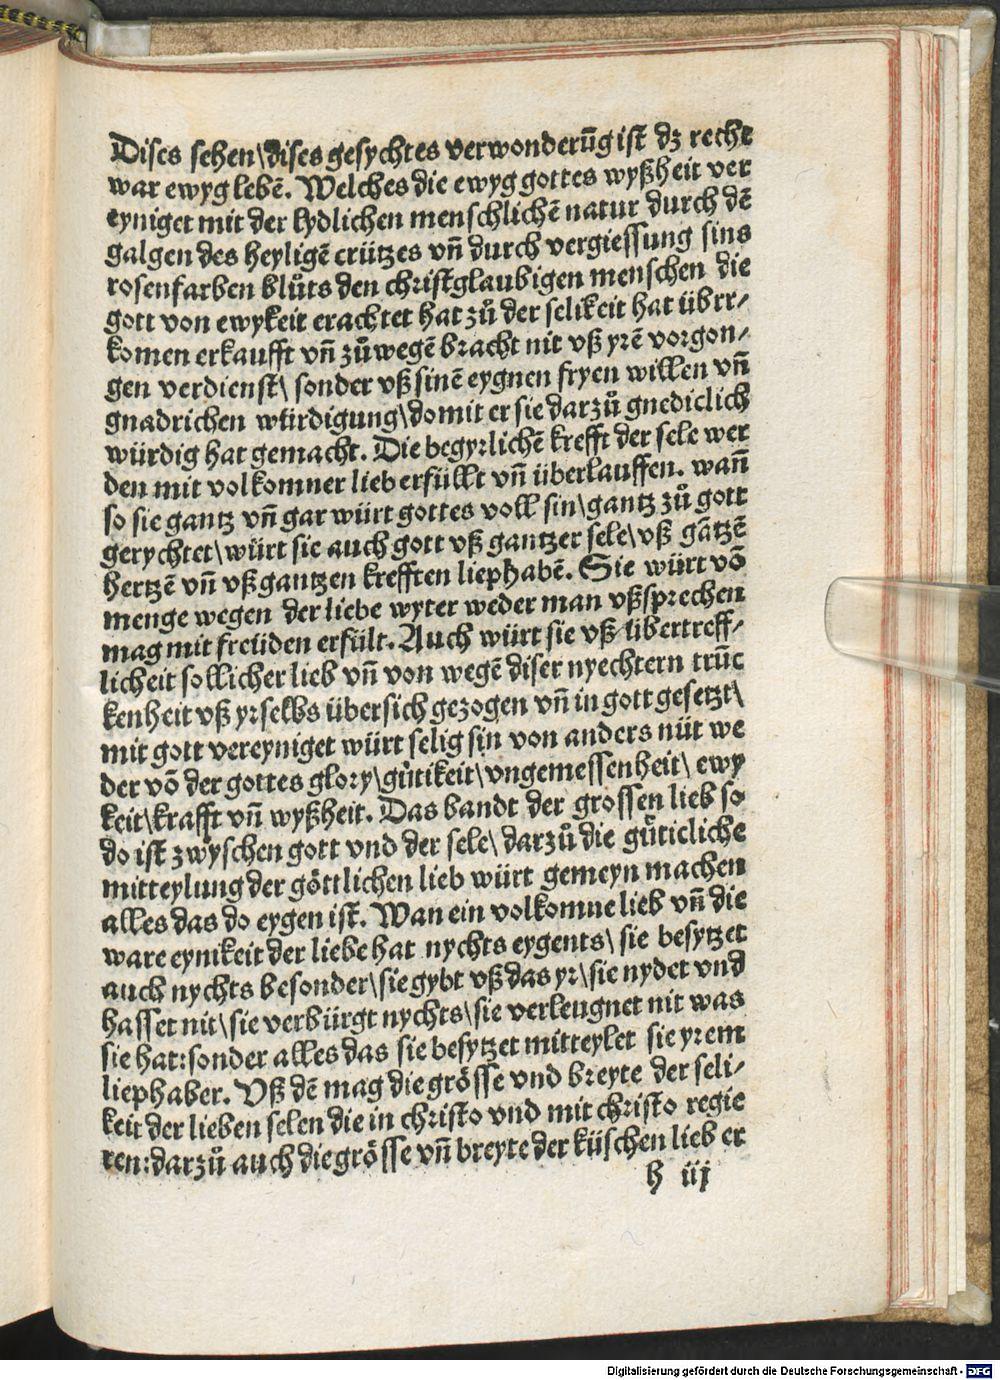 Dises sehen\dises gesychtes verwonderūg ist dz recht
war ewyg lebē. Welches die ewyg gottes wyßheit ver
eyniget mit der lydlichen menschlichē natur durch dē
galgen des heyligē crützes vn̄ durch vergiessung sins
rosenfarben blůts den christglaubigen menschen die
gott von ewykeit erachtet hat zů der selikeit hat übrr-
komen erkaufft vn̄ zůwegē bracht nit vß yrē vorgon-
gen verdienst\ sonder vß sinē eygnen fryen willen vn̄
gnadrichen würdigung\domit er sie darzů gnediclich
würdig hat gemacht. Die begyrlichē krefft der sele wer
den mit volkomner lieb erfüllt vn̄ überlauffen. wan̄
so sie gantz vn̄ gar würt gottes voll sin\gantz zů gott
gerychtet\würt sie auch gott vß gantzer sele\vß gātzē
hertzē vn̄ vß gantzen krefften liephabē. Sie würt vō
menge wegen der liebe wyter weder man vßsprechen
mag mit freüden erfült. Auch würt sie vß übertreff-
licheit sollicher lieb vn̄ von wegē diser nyechtern trūc
kenheit vß yrselbs übersich gezogen vn̄ in gott gesetzt\
mit gott vereyniget würt selig sin von anders nüt we
der vō der gottes glory\gůtikeit\vngemessenheit\ ewy
keit\krafft vn̄ wyßheit. Das bandt der grossen lieb so
do ist zwyschen gott vnd der sele\ darzů die gůticliche
mitteylung der göttlichen lieb würt gemeyn machen
alles das do eygen ist. Wan ein volkomne lieb vn̄ die
ware eynikeit der liebe hat nychts eygents\ sie besytzet
auch nychts besonder\sie gybt vß das yr\sie nydet vnd
hasset nit\sie verbürgt nychts\sie verleugnet nit was
sie hat:sonder alles das sie besytzet mitteylet sie yrem
liephaber. Vß dē mag die grösse vnd breyte der seli-
keit der lieben selen die in christo vnd mit christo regie
ren:darzů auch die grösse vn̄ breyte der küschen lieb er
h iij
Digitalisierung gefördert durch die Deutsche Forschungsgemeinschaft - DFG